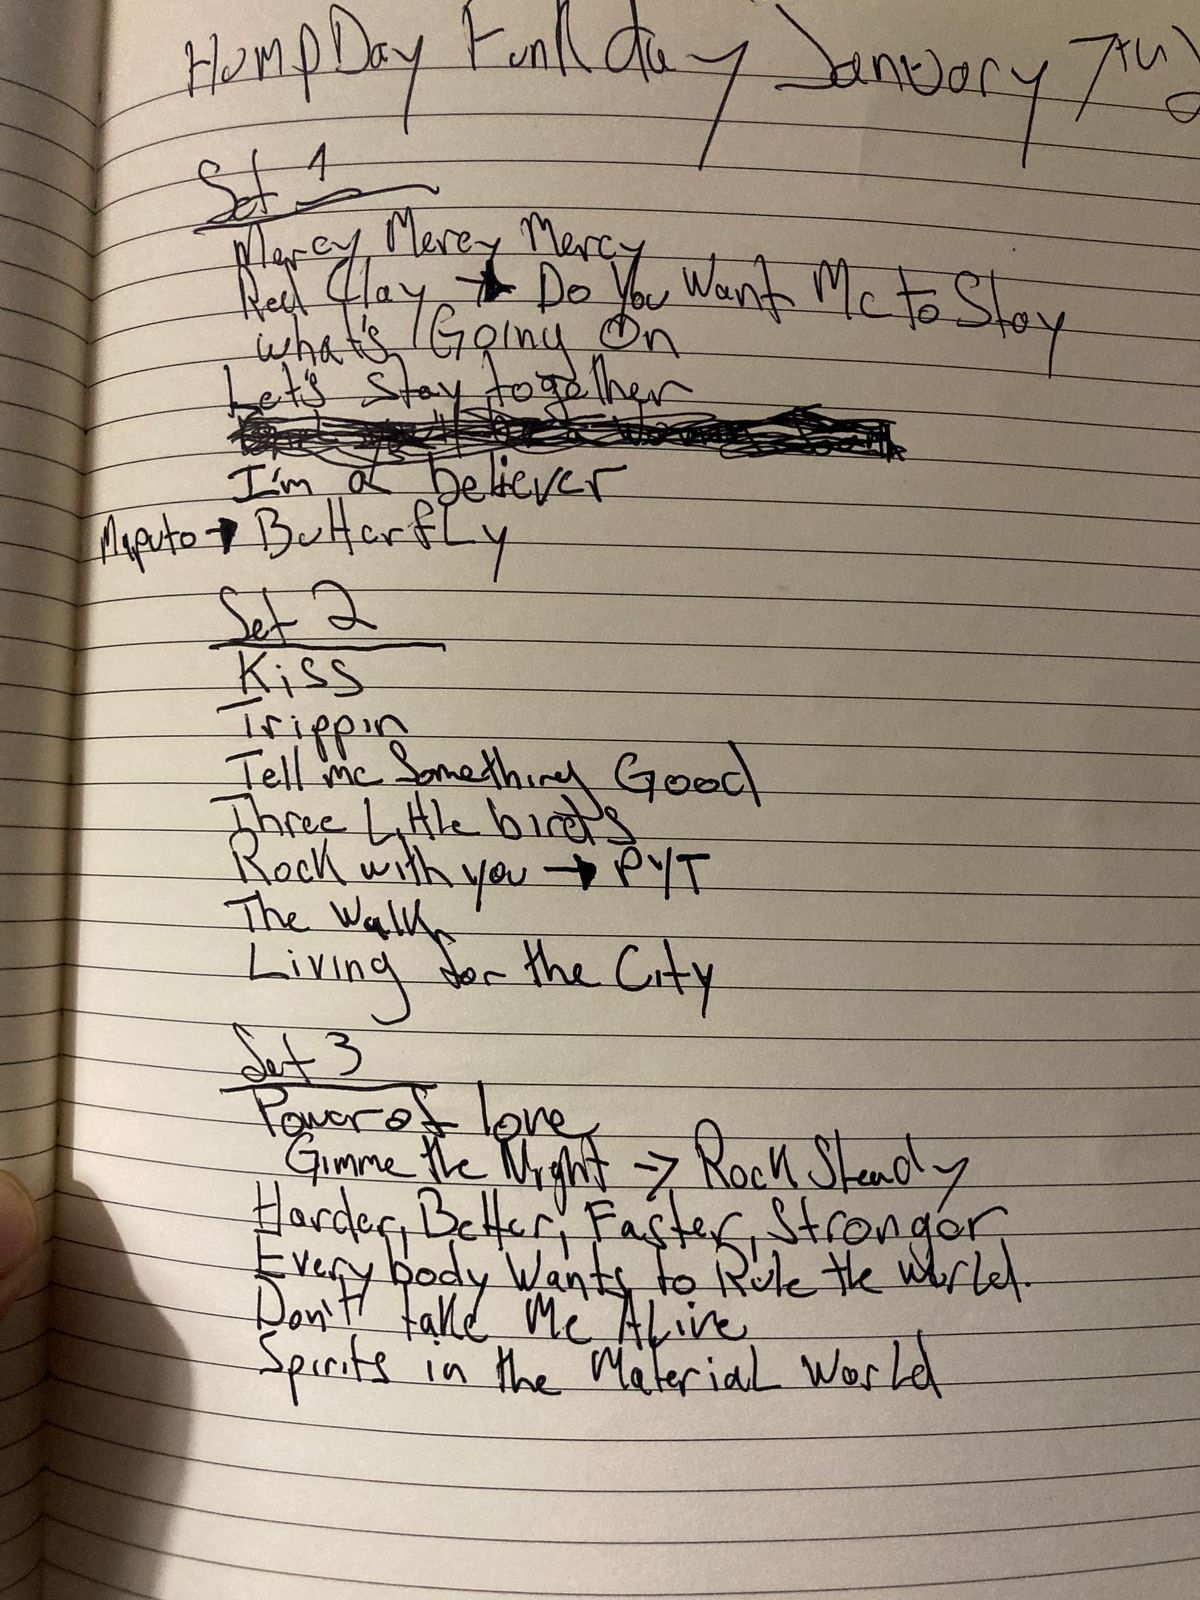 Hump Day Funk day January 7th
Set 1
Mercy Mercy Mercy
Red Clay → Do You Want Me to Stay
What's Going On
Let's Stay together
I'm a believer
Maputo → Butterfly
Set 2
Kiss
Trippin
Tell me Something Good
Three Little birds
Rock with you → PYT
The Walk
Living for the City
Set 3
Power of love
Gimme the Night → Rock Steady
Harder, Better, Faster, Stronger
Everybody Wants to Rule the World.
Don't take Me Alive
Spirits in the Material World